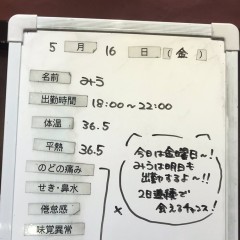 5 月 16 日 (金)
名前 みう
出勤時間 18:00～22:00
体温 36.5
平熱 36.5
のどの痛み
せき・鼻水
倦怠感
味覚異常
×
今日は金曜日～!
みうは明日も
出勤するよ～!!
2日連続で
会えるチャンス!